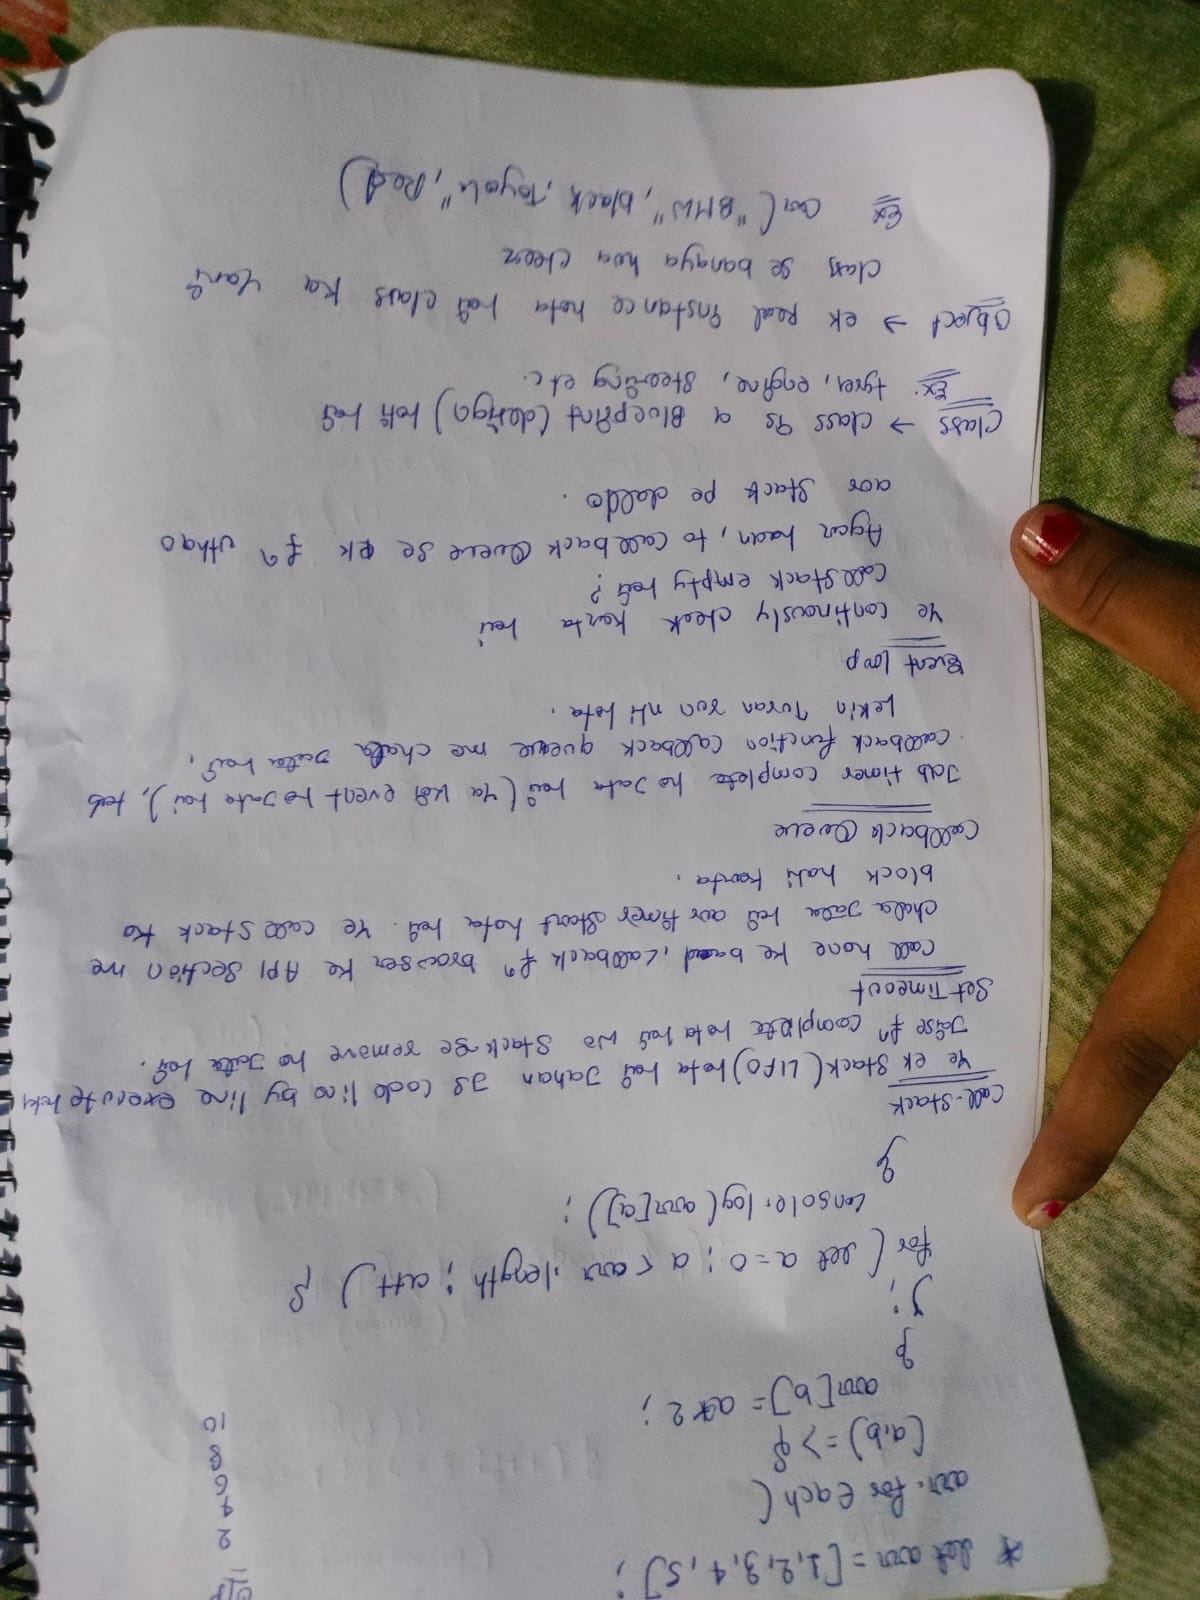 * let arr = [1,2,3,4,5];
O/P
arr.forEach(
2
(a,b) => {
4
arr[b] = a*2;
6
}
8
);
10
for (let a=0; a<arr.length; a++) {
console.log(arr[a]);
}
Call-Stack
Ye ek Stack (LIFO) hota hai Jahan JS Code line by line execute hota
Jaise fn complete hota hai wo Stack se remove ho Jata hai.
SetTimeout
Call hone ke baad, callback fn browser ke API Section me
chala Jata hai aur timer Start hota hai. Ye call Stack ko
block nahi karta.
Callback Queue
Jab timer complete ho Jata hai (Ya koi event ho Jata hai), tab
callback function callback queue me chala Jata hai,
Lekin Turan run nhi hota.
Event loop
Ye continously check karta hai
Call Stack empty hai?
Agar haan, to callback Queue se ek fn uthao
aor Stack pe daldo.
Class → class is a Blueprint (design) hoti hai
Ex. tyres, engine, Steering etc.
Object → ek Real Instance hota hai class ka Yani
class se banaya hua cheez
Ex Car ("BMW", black, Toyota", Red)